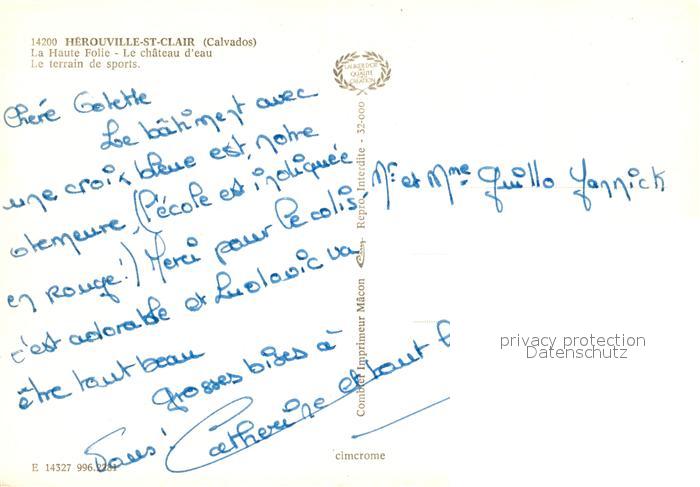 14200 HÉROUVILLE-ST-CLAIR (Calvados)
La Haute Folie - Le château d'eau
Le terrain de sports.
LAURÉAT D'OR
QUALITÉ
CRÉATION
Chère Colette
Le bâtiment avec
une croix bleue est, notre
demeure, (l'école est indiquée
en rouge!) Merci pour le colis,
c'est adorable et Ludovic va
être tout beau
grosses bises à
Tous! Catherine et tout
Mr et Mme Guillo Yannick
Combier Imprimeur Mâcon
Repro. Interdite - 32-000
privacy protection
Datenschutz
cimcrome
E 14327 996.2281